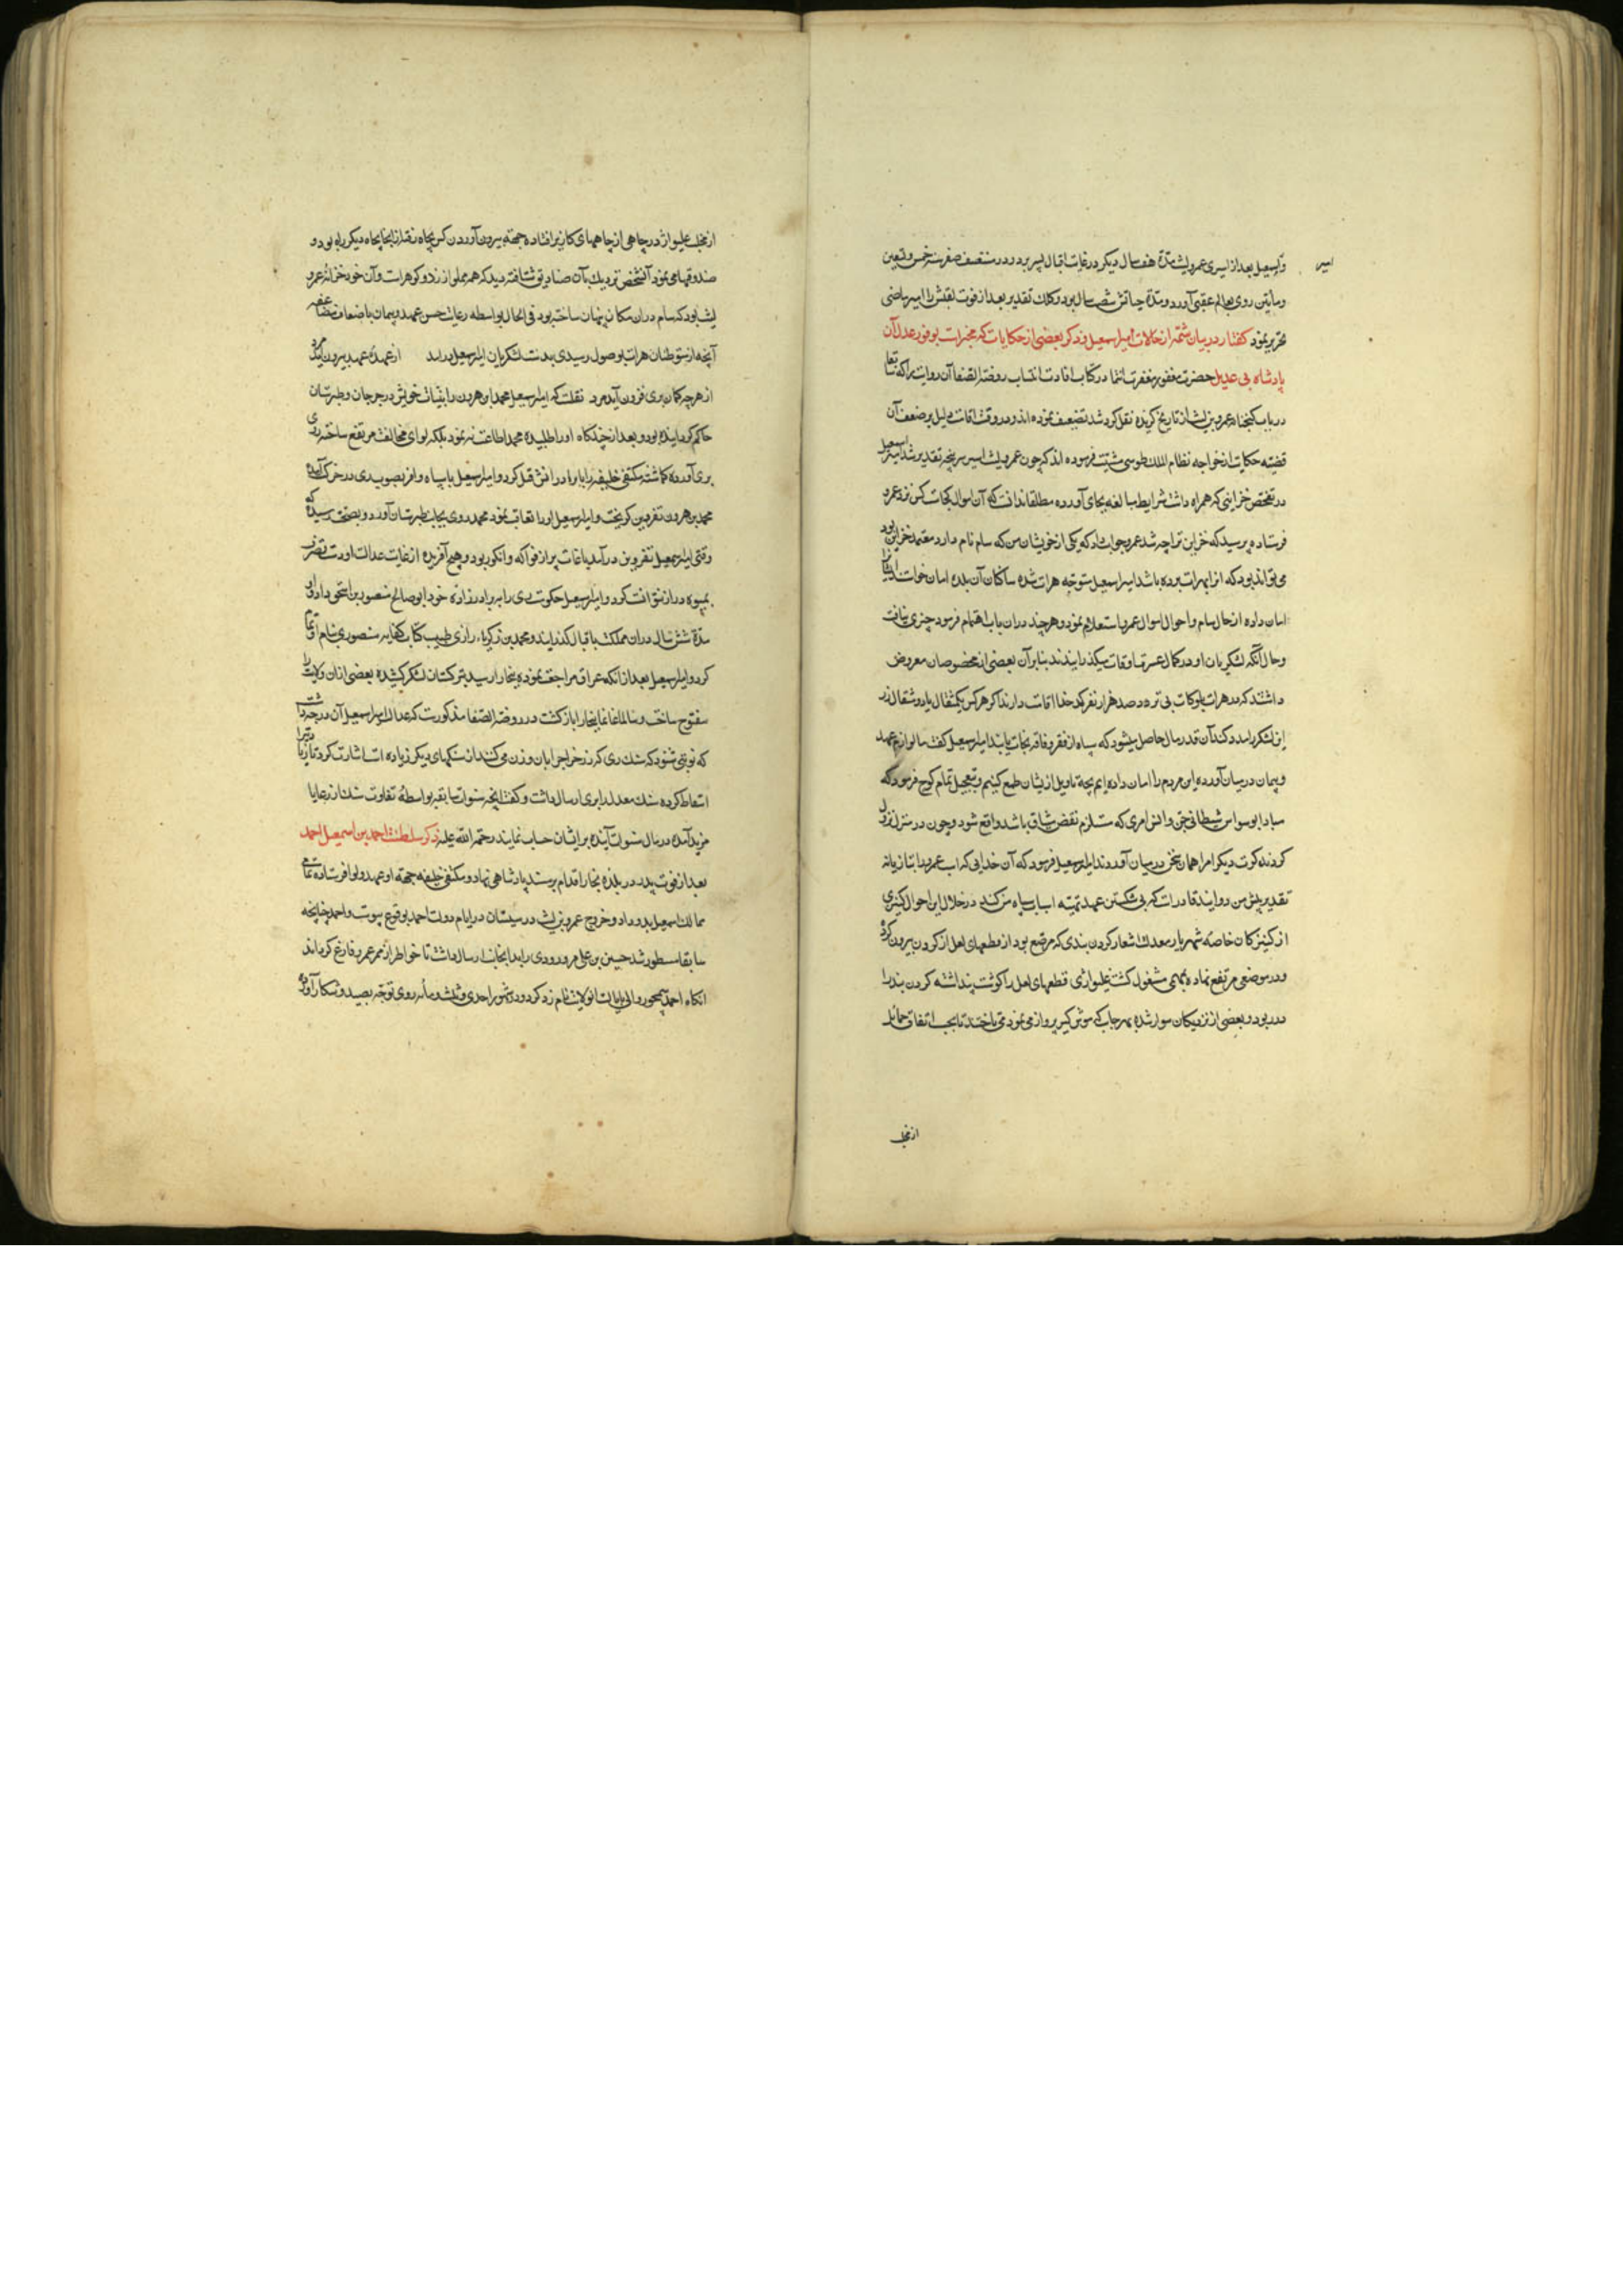 امیر
و اسمعیل بعد از اسیری عمرو لیث مدة هفت سال دیکر در غایت اقبال بسر برد و در منتصف صفر سنه خمس و تسعین
و مأتین روی بعالم عقبی آورد و مدة حیاتش شصت سال بود و کلک تقدیر بعد از فوت لقبش را امیر ماضی
تحریر نمود کفتار در بیان شمه از حالات امیر اسمعیل و ذکر بعضی از حکایات که مخبرات بوفور عدل آن
پادشاه بی عدیل حضرت مغفور مغفرت انتما در کتاب افادت انتساب روضة الصفا آن روایت را که
در باب کنجنامه عمرو بن لیث از تاریخ کزیده نقل کرده شد تضعیف نموده اند و در وقت اقامت دلیل بر ضعف آن
قضیه حکایت از خواجه نظام الملک طوسی مثبت فرموده اند که چون عمرو لیث اسیر سرپنجه تقدیر شد امیر اسمعیل
در تفحص خزاینی که همراه داشت شرایط مبالغه بجای آورده مطلقا ندانست که آن اموال کجاست کس نزد عمرو
فرستاده پرسید که خزاین ترا چه شد عمرو جواب داد که یکی از خویشان من که سام نام دارد معتمد خزاین بود
می تواند بود که انرا بهرات برده باشد امیر اسمعیل متوجه هرات شده ساکنان آن بلده امان خواستند
امان داده از حال سام و احوال اموال عمرو استعلام نمود و هرچند دران باب اهتمام فرمود چیزی نیافت
و حال آنکه لشکریان او در کمال عسرت اوقات میکذرانیدند بنابرآن بعضی از مخصوصان معروض
داشتند که در هرات و بلوکات صد هزار نفر کدخدا اقامت دارند اکر هر کس یکمثقال یا دو مثقال زر
این لشکر را مدد کند آن قدر مال حاصل میشود که سپاه از فقر و فاقه نجات یابند امیر اسمعیل کفت ما لوازم عهد
و پیمان در میان آورده این مردم را امان داده ایم بچه تاویل ازیشان طمع کنیم و بتعجیل تمام کوچ فرمود که
مبادا بوسواس شیطانی و الزام امری که مستلزم نقض میثاق باشد واقع شود و چون در منزل نزول
کردند کرت دیکر امرا همان سخن در میان آوردند امیر اسمعیل فرمود که آن خدایی که اسب عمرو را بتازیانه
تقدیر پیش من دوانید قادرست که بی شکستن عهد تهیه اسباب سپاه من کند در خلال این احوال کنیزی
از کنیزکان خاصه شهریار معدلت شعار کردن بندی که مرصع بود از قطعهای لعل از کردن بیرون کرده
و در موضعی مرتفع نهاده بمهمی مشغول کشت غلیواژی قطعهای لعل را کوشت پنداشته کردن بند را
در ربود و بعضی از نزدیکان سوار شده بهر جانب که موش کیر پرواز می نمود می تاختند تا بحسب اتفاق حمایل
از مخلب
از مخلب غلیواژ در چاهی از چاههای کاریز افتاده جهته بیرون آوردن کس بچاه رفت از انجا بچاه دیکر راه بود و
صندوقها می نمود آنشخص نزدیک بآن صنادیق شتافته دید که همه مملو از زر و کوهرست و آن خود خزانه عمرو
لیث بود که سام دران مکان پنهان ساخته بود فی الحال بواسطه رعایت حسن عهد و پیمان باضعاف مضاعفه
آنچه از متوطنان هرات بوصول رسیدی بدست لشکریان امیر اسمعیل درامد از عهده عهد بیرون آید مرد
از هرچه کمان بری فزون آید مرد نقلست که امیر اسمعیل محمد ابن هرون را بنیابت خویش در جرجان و طبرستان
حاکم کردانیده بود و بعد از چندکاه او را طلبیده محمد اطاعت ننمود بلکه لوای مخالفت مرتفع ساخته روی
بری آورده کماشته مکتفی خلیفه را با برادرانش قتل کرد و امیر اسمعیل با سپاه وافر بصوب ری در حرکت آمده
محمد بن هرون بقزوین کریخت و امیر اسمعیل او را تعاقب نمود محمد روی بجانب طبرستان آورد و بصحت رسیده که
وقتی امیر اسمعیل بقزوین درآمد باغات پر از فواکه و انکور بود و هیچ آفریده از غایت عدالت او دست تصرف
بمیوه دراز نتوانست کرد و امیر اسمعیل حکومت ری را به برادرزاده خود ابو صالح منصور بن اسحق داد و او
مدة شش سال دران مملکت باقبال کذرانید و محمد بن زکریاء رازی طبیب کتاب کفایه منصوری بنام او تمام
کرد و امیر اسمعیل بعد از آنکه از عراق مراجعت نموده ببخارا رسید بترکستان لشکر کشیده بعضی ازان ولایت را
مفتوح ساخت و سالما غانما ببخارا بازکشت در روضة الصفا مذکورست که عدالت امیر اسمعیل آن درجه داشت
که نوبتی شنود که سنک ری که زر خراج را بان وزن می کنند از سنکهای دیکر زیاده است اشارت کرد تا زیادتی را
اسقاط کرده سنک معدل را بری ارسال داشت و کفت آنچه سنوات سابقه بواسطه تفاوت سنک از رعایا
مزید آمده در مال سنوات آینده برایشان حساب نمایند رحمة الله علیه ذکر سلطنت احمد بن اسمعیل احمد
بعد از فوت پدر در بلده بخارا قدم بر مسند پادشاهی نهاد و مکتفی خلیفه جهته او عهد و لوا فرستاده تمامی
ممالک اسمعیل بدو داد و خروج عمرو بن لیث در سیستان در ایام دولت احمد بوقوع پیوست و احمد چنانچه
سابقا مسطور شد حسین بن علی مرورودی را بدانجانب ارسال داشت تا خواطر از ممر عمرو فارغ کرداند
آنکاه احمد سیمجور والی ایالت انولایت نامزد کرد و در شهور احدی و ثلثمأنه روی توجه بصید و شکار آورده